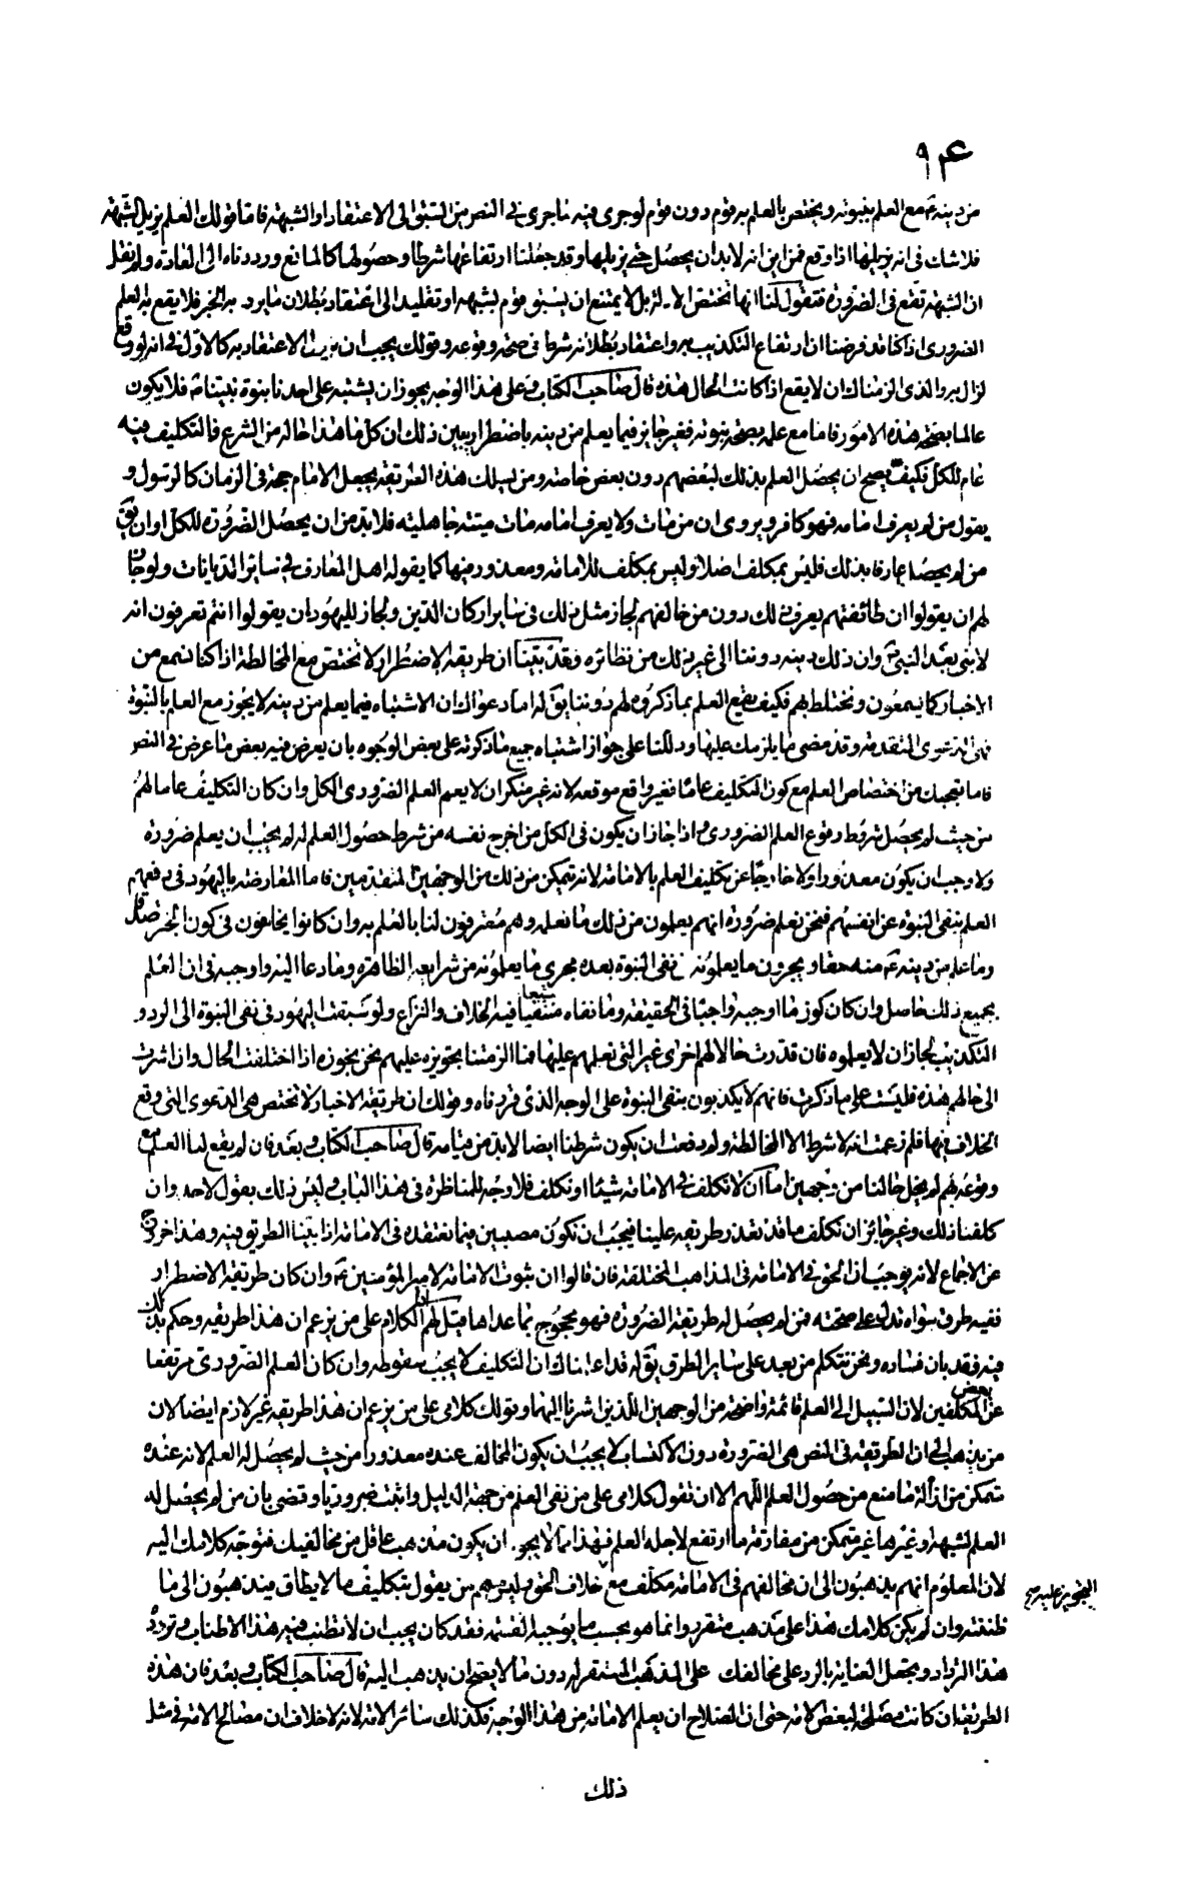 ٩٤
من دينه ع مع العلم بنبوته ويختص بالعلم به قوم دون قوم لو جرى فيه ما جرى في النص من السبق الى الاعتقاد او الشبهة فاما قولك العلم يزيل الشبهة
فلا شك في انه يزيلها اذا وقع فمن اين انه لا بد ان يحصل حتى يزيلها وقد جعلنا ارتفاعها شرطا وحصولها كالمانع ورددناه الى العادة ولم نقل
ان الشبهة تقع في الضرورة فتقول لنا انها تختص الا بل لا يمتنع ان يسبق قوم لشبهة او تقليد الى اعتقاد بطلان ما يرد به الخبر فلا يقع به العلم
الضروري اذا كنا قد فرضنا ان ارتفاع التكذيب به واعتقاد بطلانه شرط في صحة وقوعه وقولك يجب ان الاعتقاد به كالاول في انه لو وقع
لزال به والذي الزمناك ان لا يقع اذا كانت الحال هذه قال صاحب الكتاب وعلى هذا الوجه يجوز ان يشتبه على احدنا بنوة نبينا ع فلا يكون
عالما بصحة هذه الامور فاما مع علمه بصحة نبوته فغير جايز فيما يعلم من دينه باضطرار يبين ذلك ان كل ما هذا حاله من الشرع فالتكليف فيه
عام للكل فكيف يصح ان يحصل العلم بذلك لبعضهم دون بعض خاصة ومن يسلك هذه الطريقة يجعل الامام حجة في الزمان كالرسول و
يقول من لم يعرف امامه فهو كافر ويروى ان من مات ولا يعرف امامه مات ميتة جاهلية فلا بد من ان يحصل الضرورة للكل او ان يق
من لم يحصل عارفا بذلك فليس بمكلف اصلا وليس بمكلف للامامة ومعذور فيها كما يقوله اهل المعارف في ساير الديانات ولو جاز
لهم ان يقولوا ان طائفتهم يعرف ذلك دون من خالفهم لجاز مثل ذلك في ساير اركان الدين ولجاز لليهود ان يقولوا انتم تعرفون انه
لا نبي بعد النبي ص وان ذلك دينه دوننا الى غير ذلك من نظائره وقد بينا ان طريقة الاضطرار لا تختص مع المخالطة اذا كنا نسمع من
الاخبار كما يسمعون ونختلط بهم فكيف يقع العلم بما ذكروه لهم دوننا يق له اما دعواك ان الاشتباه فيما يعلم من دينه لا يجوز مع العلم بالنبوة
فهي الدعوى المتقدمة وقد مضى ما يلزمك عليها ودللنا على جواز اشتباه جميع ما ذكرته على بعض الوجوه بان يعرض فيه بعض ما عرض في النص
فاما تعجبك من اختصاص العلم مع كون التكليف عاما فغير واقع موقعه لانه غير منكر ان لا يعم العلم الضروري الكل وان كان التكليف عاما لهم
من حيث لم يحصل شروط وقوع العلم الضروري واذا جاز ان يكون في الكل من اخرج نفسه من شرط حصول العلم له لم يجب ان يعلم ضرورة
ولا وجب ان يكون معذورا ولا خارجا عن تكليف العلم بالامامة لانه تمكن من ذلك من الوجهين المتقدمين فاما المعارضة باليهود في دفعهم
العلم بنفي النبوة عن انفسهم فنحن نعلم ضرورة انهم يعلمون من ذلك ما نعلمه وهم معترفون لنا بالعلم به وان كانوا يخالفون في كون الخبر صدقا
وما علم من دينه ع منه حقا ويجرون ما يعلمونه في نفي النبوة بعده مجرى ما يعلمونه من شرايعه الظاهرة وما دعا اليه واوجبه في ان العلم
بجميع ذلك حاصل وان كان كون ما اوجبه واجبا في الحقيقة وما نفاه منتفيا فيه الخلاف والنزاع ولو سبقت اليهود في نفي النبوة الى الرد و
التكذيب لجاز ان لا يعلموه فان قدرت حالا لهم اخرى غير التي نعلمهم عليها فما الزمتنا بتجويزه عليهم نحن نجوزه اذا اختلفت الحال وان اشرت
الى حالهم هذه فليست على ما ذكرت فانهم لا يكذبون بنفي النبوة على الوجه الذي قررناه وقولك ان طريقة الاخبار لا تختص هي الدعوى التي وقع
الخلاف فيها فلم زعمت انه لا شرط الا المخالطة ولم دفعت ان يكون شرطنا ايضا لا بد من قيامه قال صاحب الكتاب وبعد فان لم يقع لنا العلم مع
وقوعه لهم لم يخل حالنا من وجهين اما ان لا نكلف في الامامة شيئا او نكلف فلا وجه للمناظرة في هذا الباب وليس ذلك بقول لاحد وان
كلفنا ذلك وغير جائز ان نكلف ما قد تعذر طريقه علينا فيجب ان نكون مصيبين فيما نعتقده في الامامة اذا بينا الطريق فيه وهذا خروج
عن الاجماع لانه يوجب ان الحق في الامامة في المذاهب المختلفة فان قالوا ان ثبوت الامامة لامير المؤمنين ع وان كان طريقه الاضطرار
ففيه طرق سواه تدل على صحته فمن لم يحصل له طريقة الضرورة فهو محجوج بما عداها قيل لهم انما الكلام على من يزعم ان هذا طريقه وحكم بذلك
فيه فقد بان فساده ونحن نتكلم من بعد على ساير الطرق يق له قد اعلمناك ان التكليف لا يجب سقوطه وان كان العلم الضروري مرتفعا
عن بعض المكلفين لان السبيل الى العلم قائمة واضحة من الوجهين اللذين اشرنا اليهما وقولك كلامي على من يزعم ان هذا طريقه غير لازم ايضا لان
من يذهب الى ان الطريقة في النص هي الضرورة دون الاكتساب لا يجب ان يكون المخالف عنده معذورا من حيث لم يحصل له العلم لانه عنده
متمكن من ازالة ما منع من حصول العلم اللهم الا ان تقول كلامي على من نفى العلم من جهة الدليل واثبت ضروريا وقضى بان من لم يحصل له
العلم لشبهة او غيرها غير متمكن من مفارقة ما ارتفع لاجله العلم فهذا مما لا يجوز ان يكون مذهب عاقل من مخالفيك فتوجه كلامك اليه
لان المعلوم انهم يذهبون الى ان مخالفهم في الامامة مكلف مع خلاف الحق وليس هم ممن يقول بتكليف ما لا يطاق فيذهبون الى ما
ظننته وان لم يكن كلامك هذا على مذهب متقرر وانما هو بحسب ما يوجبه القسمة فقد كان يجب ان لا تطنب فيه هذا الاطناب وتردد
هذا الترداد وتجعل العناية بالرد على مخالفك على المذهب المستقر له دون ما لا يصح ان يذهب اليه قال صاحب الكتاب وبعد فان هذه
الطريقة ان كانت مصلحة لبعض الامة حتى ان الصلاح ان يعلم الامامة من هذا الوجه فكذلك سائر الامة لانه لا خلاف ان مصالح الامة في مثل
ذلك